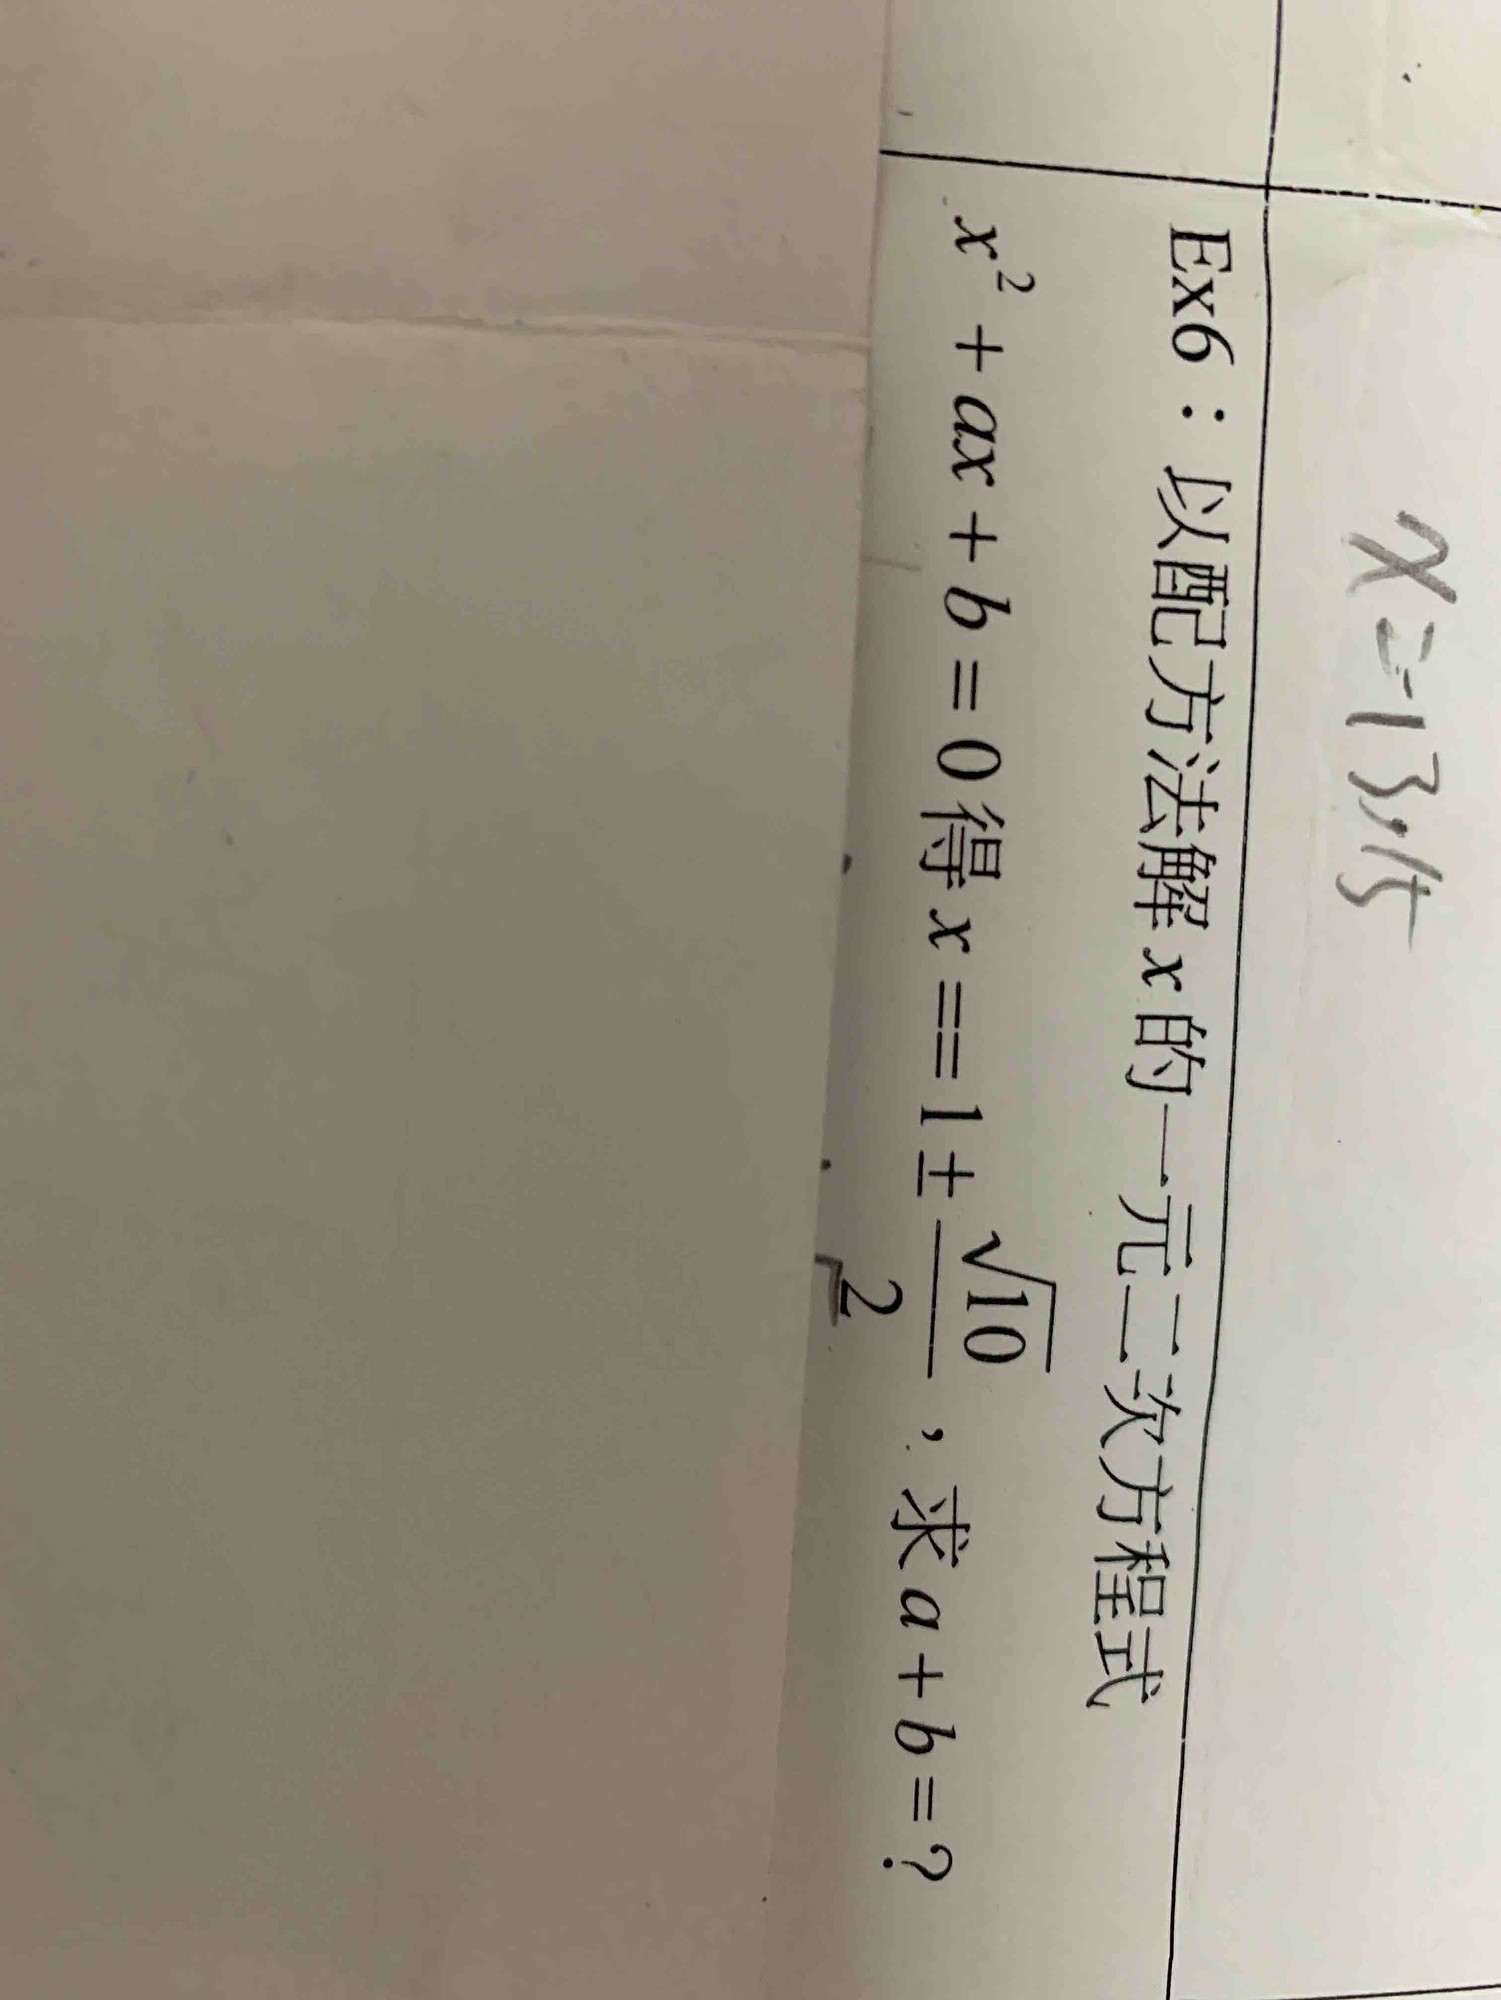 x=-13,15
Ex6：以配方法解x的一元二次方程式
x² + ax + b = 0 得 x == 1 ± √10/2，求 a + b = ?